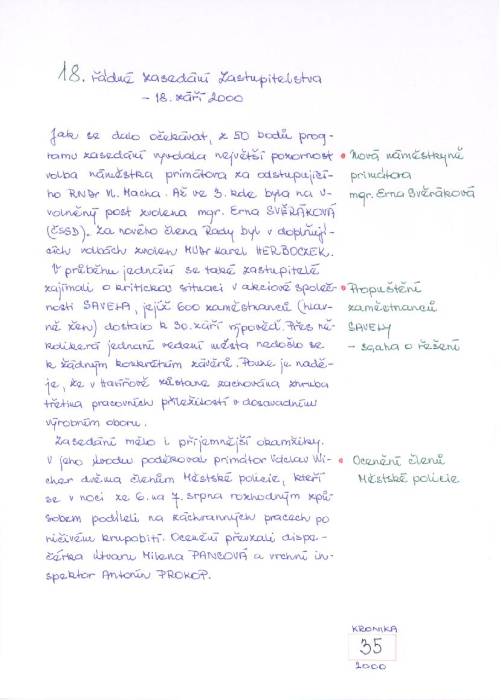 18. řádné zasedání Zastupitelstva
– 18. září 2000
Jak se dalo očekávat, z 50 bodů prog-
ramu zasedání vyvolala největší pozornost
volba náměstka primátora za odstupující-
ho RNDr Vl. Macha. Až ve 3. kole byla na u-
volněný post zvolena mgr. Erna SVĚRÁKOVÁ
(ČSSD). Za nového člena Rady byl v doplňují-
cích volbách zvolen MUDr Karel HERBOCZEK.
V průběhu jednání se také zastupitelé
zajímali o kritickou situaci v akciové společ-
nosti SAVELA, jejíž 600 zaměstnanců (hlav-
ně žen) dostalo k 30. září výpověď. Přes ně-
kolikerá jednání vedení města nedošlo se
k žádným konkrétním závěrů. Pouze je nadě-
je, že v továrně zůstane zachována zhruba
třetina pracovních příležitostí v dosavadním
výrobním oboru.
Zasedání mělo i příjemnější okamžiky.
V jeho úvodu poděkoval primátor Václav Wi-
cher dvěma členům Městské policie, kteří
se v noci ze 6. na 7. srpna rozhodným způ-
sobem podíleli na záchranných pracech po
ničivém krupobití. Ocenění převzali dispe-
čérka útvaru Milena PANCOVÁ a vrchní in-
spektor Antonín PROKOP.
• Nová náměstkyně
primátora
mgr. Erna Svěráková
• Propuštění
zaměstnanců
SAVELY
– snaha o řešení
• Ocenění členů
Městské policie
KRONIKA
35
2000